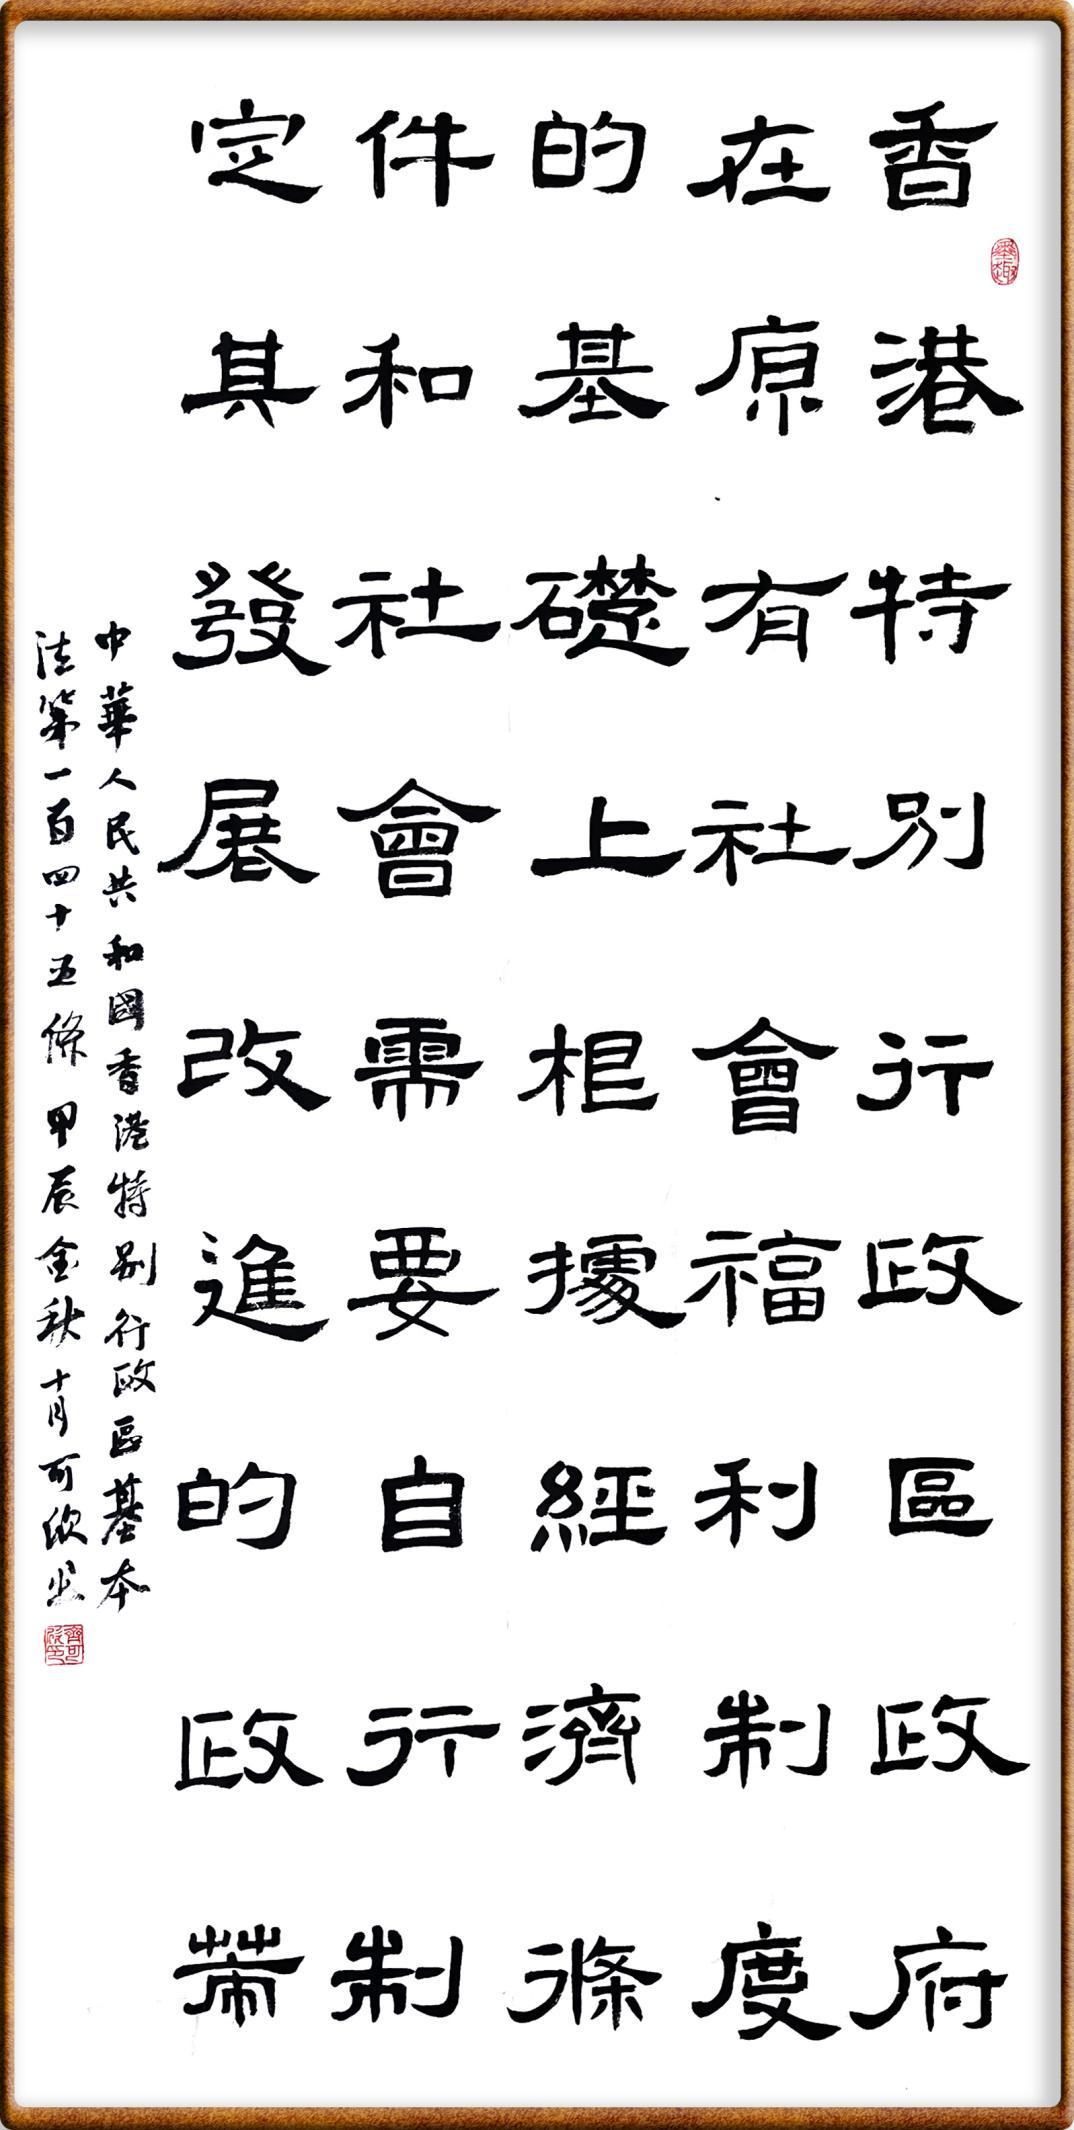 香港特別行政區政府
墨趣
在原有社會福利制度
的基礎上根據經濟條
件和社會需要自行制
定其發展改進的政策
中華人民共和國香港特別行政區基本
法第一百四十五條 甲辰金秋十月可欣书
齊可欣印